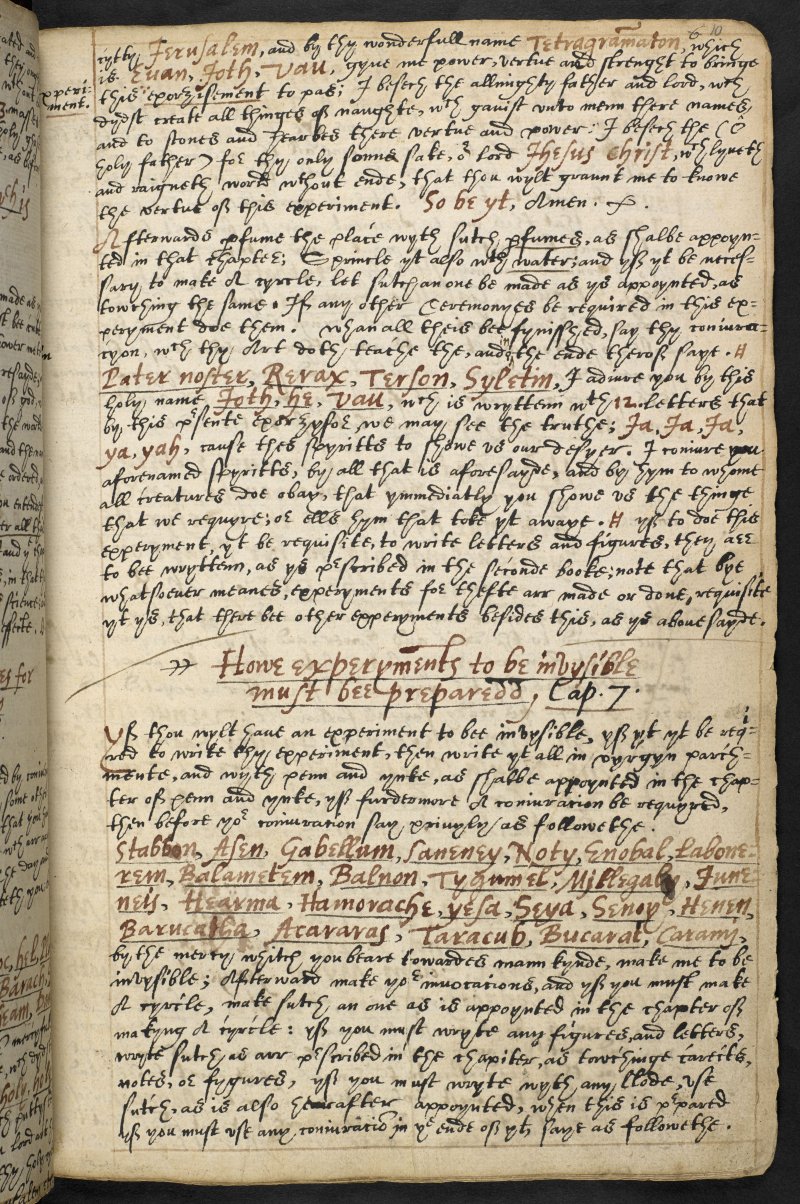 6 10
cytty, Jerusalem, and by thy wonderfull name Tetragramaton, which
is Evan, Joth, Vau, gyve me power, vertue and strenght to bringe
this exorzisement to pas; I besech the allmighty father and lord, wch
dydst create all thinges of naughte, wch gavist unto menn there names,
and to stones and hearbes there vertue and power: I besech the (O
holy father) for thy only sonns sake, or lord Jhesus Christ, wch lyveth
and raigneth world wthout ende, that thou wylt graunt me to knowe
the vertue of this experiment. So be yt, Amen.
Afterwards pfume the place wyth sutch pfumes, as shalbe appoyn=
ted in that chapter; Sprincle yt also wth water; and yf yt be neces=
sary, to make A cyrcle, let sutch an one be made as ys appoynted, as
towching the same. If any other Ceremonyes be required in this ex=
peryment doe them. whan all theis bee fynisshed, say thy coniura=
cyon, wch thy Art doth teache the, and in the ende therof saye.
Pater noster, Rerax, Terson, Syletin, I adiure you by this
holy name Joth, he, Vau, wch is wryttenn wth 12 letters that
by this psente exorzysor we may see the truthe; Ja, Ja, Ja,
ya, yah, cause thes spyritts to showe us our desyer. I coniure you
aforenamed spyritts, by all that is aforesayde, and by hym to whome
all creatures doe obay, that ymmediatly you showe us the thinge
that we requyre; or ells hym that toke yt awaye. yf to doe this
experyment, yt be requisite, to write letters and figures, they are
to bee wryttenn, as ys pscribed in the seconde booke; note that bye
whatsoever meanes, experyments for thefte arr made or done, requisite
yt ys, that there bee other experyments besides this, as ys above sayde.
Howe experyments to be invysible
must bee preparedd, Cap. 7.
Yf thou wylt have an experiment to bee invysible, yf yt be req=
red to write thy experiment, then write yt all in vyrgyn parch=
mente, and wyth penn and ynke, as shalbe appoynted in the chap=
ter of penn and ynke, yf furdermore A coniuracion be requyred,
then before yor coniuracion say privyly as followethe.
Stabbon, Asen, Gabellum, Saneney, Noty, Enobal, Labone=
rem, Balametem, Balnon, Tygumel, Millegaly, June=
neis, Hearma, Hamorache, yesa, Seya, Senoy, Henen,
Barucatha, Acararas, Taracub, Bucarat, Caramy,
by the mercy whitch you beare towardes mann kynde, make me to be
invysible; Afterward make yor invocations, and yf you must make
A cyrcle, make sutch an one as is appoynted in the chapter of
makyng A cyrcle: yf you must wryte any figures, and letters,
wryte sutch, as arr pscribed in the chapiter, as towchinge carects,
notes, or fygures, yf you must wryte wyth any blode, use
sutch, as is also hearafter appoynted, when this is ppared
yf you must use any coniuracio in ye ende of yt, saye as followethe.